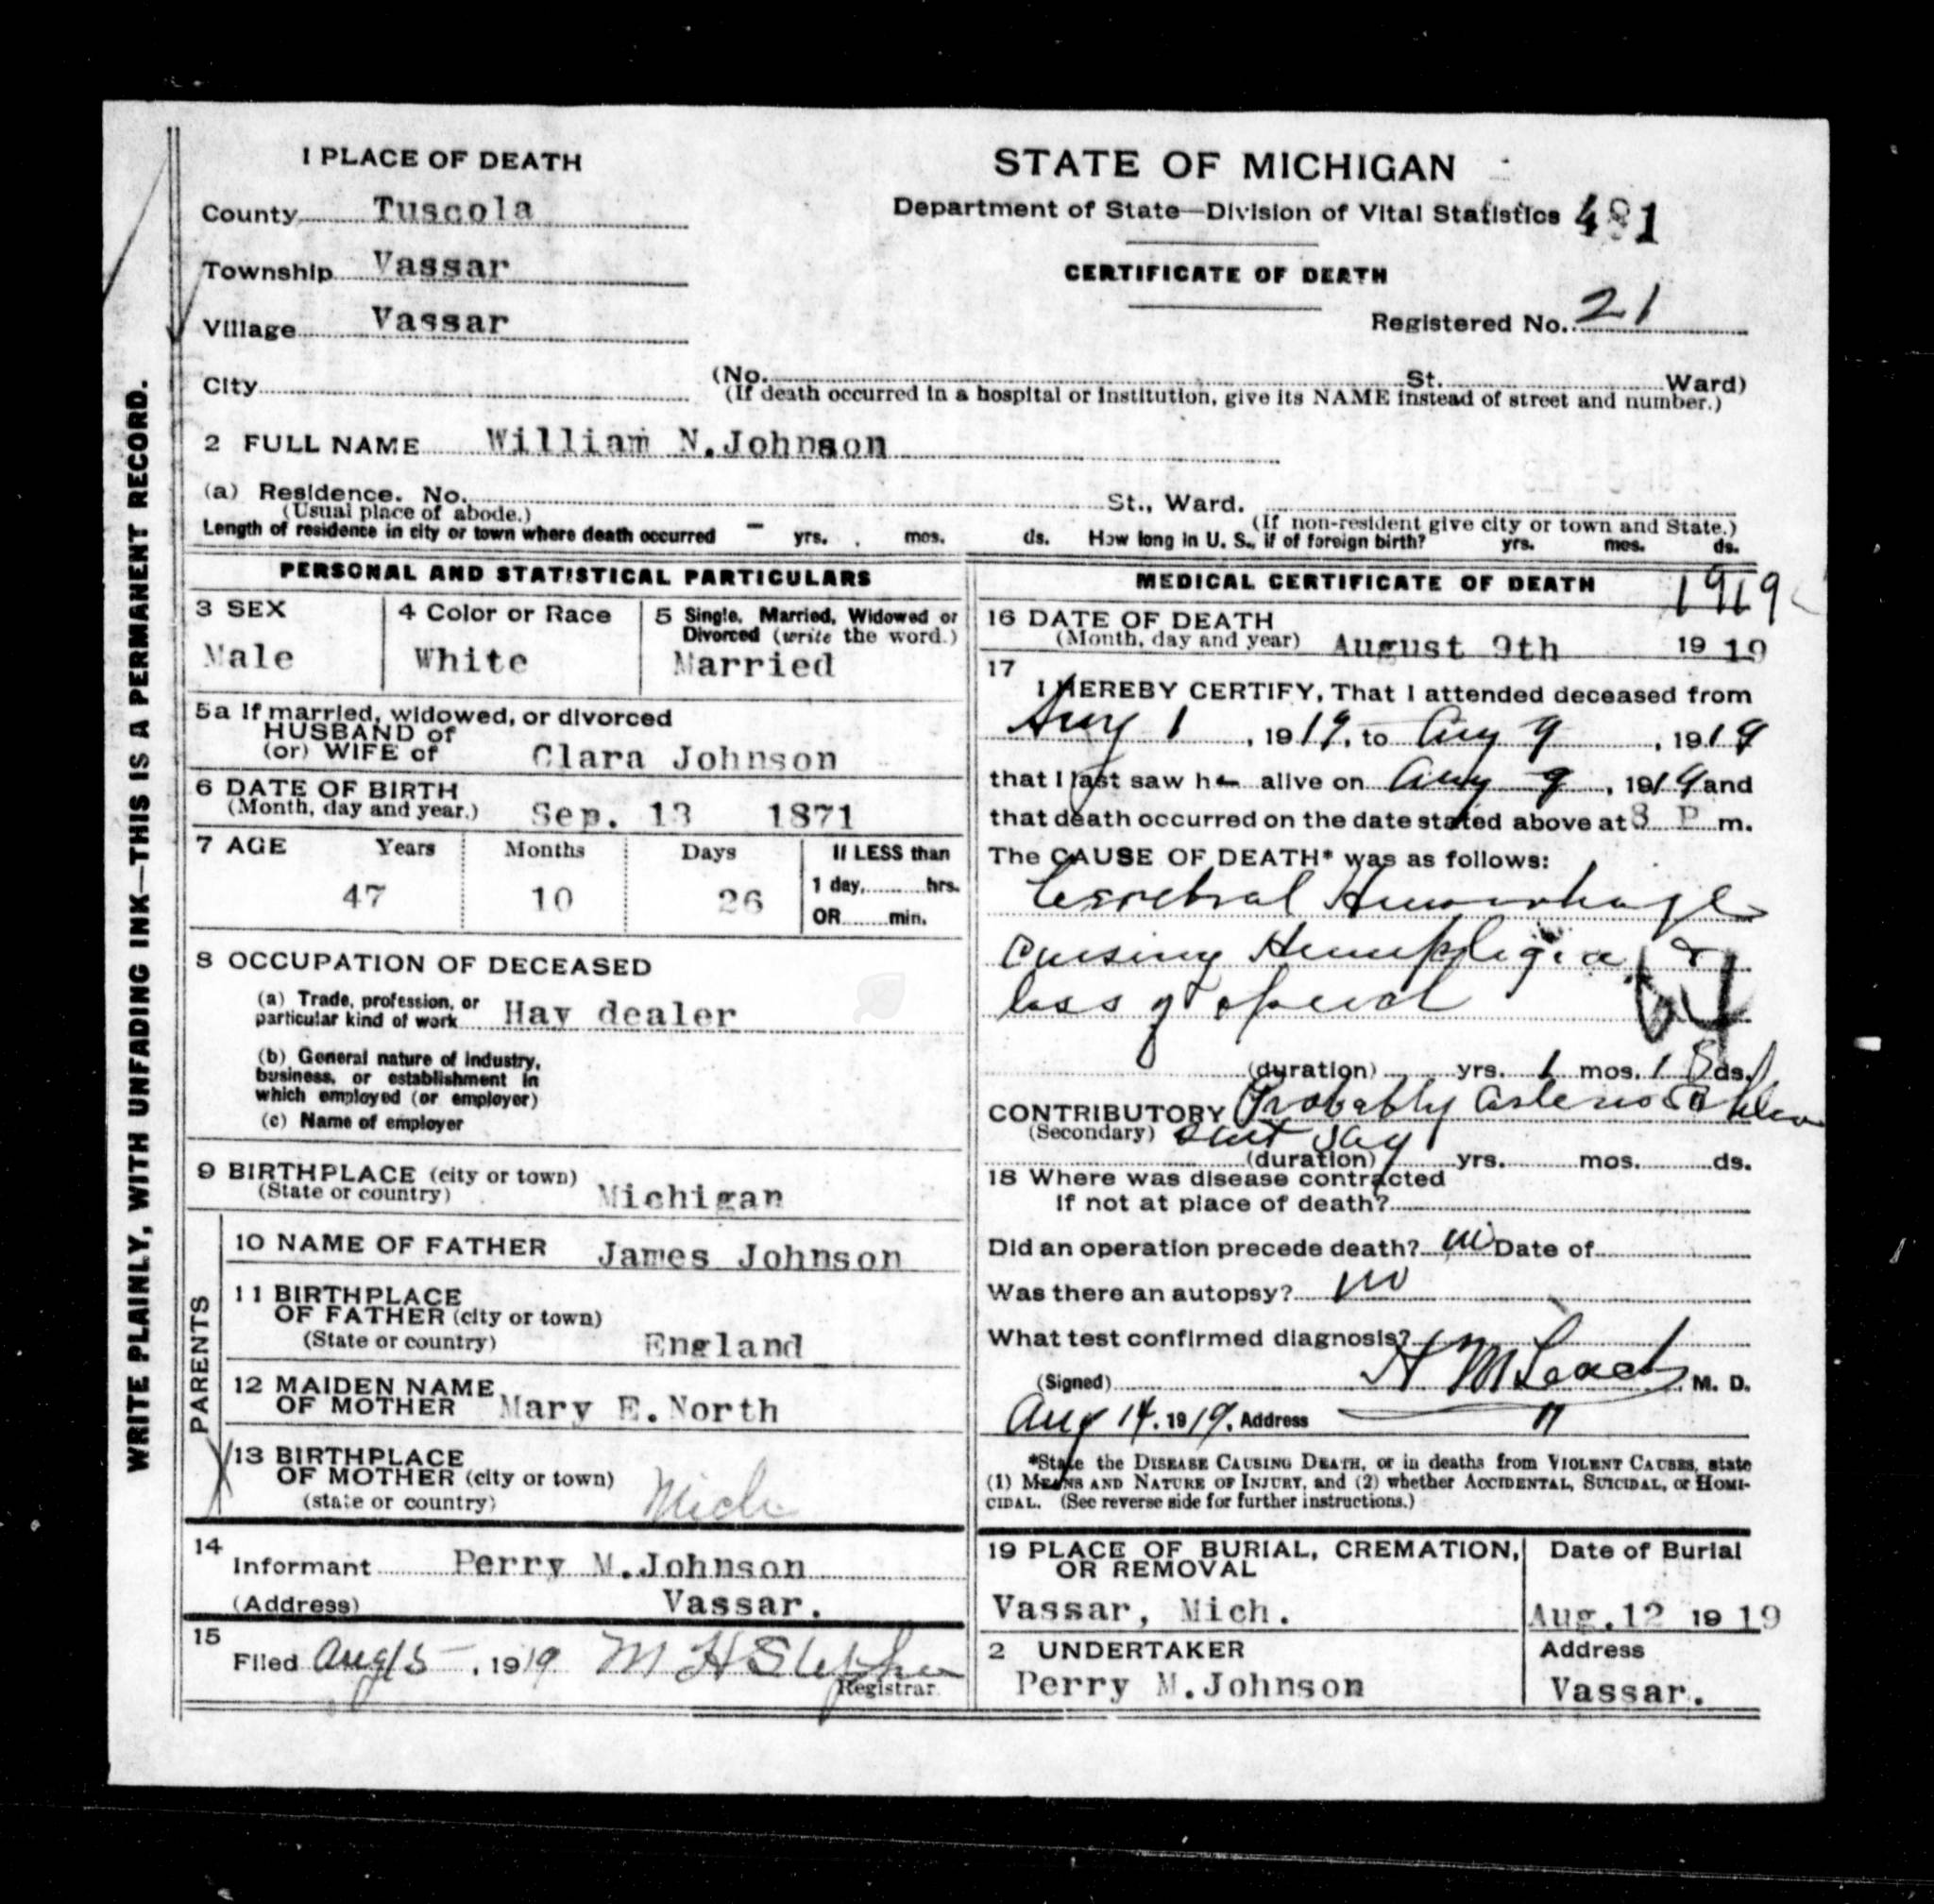 1 PLACE OF DEATH
STATE OF MICHIGAN
County Tuscola
Department of State—Division of Vital Statistics 481
Township Vassar
CERTIFICATE OF DEATH
Village Vassar
Registered No. 21
City (No. St. Ward)
(If death occurred in a hospital or institution, give its NAME instead of street and number.)
2 FULL NAME William N. Johnson
(a) Residence. No. St., Ward.
(Usual place of abode.) (If non-resident give city or town and State.)
Length of residence in city or town where death occurred – yrs. mos. ds. How long in U. S., if of foreign birth? yrs. mos. ds.
WRITE PLAINLY, WITH UNFADING INK—THIS IS A PERMANENT RECORD.
PERSONAL AND STATISTICAL PARTICULARS
3 SEX
Male
4 Color or Race
White
5 Single, Married, Widowed or
Divorced (write the word.)
Married
5a If married, widowed, or divorced
HUSBAND of
(or) WIFE of Clara Johnson
6 DATE OF BIRTH
(Month, day and year.) Sep. 13 1871
7 AGE Years Months Days If LESS than
1 day, hrs.
47 10 26
OR min.
8 OCCUPATION OF DECEASED
(a) Trade, profession, or
particular kind of work Hay dealer
(b) General nature of industry,
business, or establishment in
which employed (or employer)
(c) Name of employer
9 BIRTHPLACE (city or town)
(State or country) Michigan
PARENTS
10 NAME OF FATHER James Johnson
11 BIRTHPLACE
OF FATHER (city or town)
(State or country) England
12 MAIDEN NAME
OF MOTHER Mary E. North
13 BIRTHPLACE
OF MOTHER (city or town)
(state or country) Mich
14
Informant Perry M. Johnson
(Address) Vassar.
15
Filed Aug 15, 1919 M H
Registrar
MEDICAL CERTIFICATE OF DEATH 1919
16 DATE OF DEATH
(Month, day and year) August 9th 19 19
17
I HEREBY CERTIFY, That I attended deceased from
Aug 1, 1919, to Aug 9, 1919
that I last saw h alive on Aug 9, 1919 and
that death occurred on the date stated above at 8 P m.
The CAUSE OF DEATH* was as follows:
Cerebral Hemorrhage
causing Hemiplegia &
loss of speech
64
(duration) yrs. 1 mos. 18 ds.
CONTRIBUTORY Probably
(Secondary) cant say
(duration) yrs. mos. ds.
18 Where was disease contracted
if not at place of death?
Did an operation precede death? no Date of
Was there an autopsy? no
What test confirmed diagnosis?
(Signed) H M Leach M. D.
Aug 14. 1919. Address "
*State the DISEASE CAUSING DEATH, or in deaths from VIOLENT CAUSES, state
(1) MEANS AND NATURE OF INJURY, and (2) whether ACCIDENTAL, SUICIDAL, or HOMI-
CIDAL. (See reverse side for further instructions.)
19 PLACE OF BURIAL, CREMATION,
OR REMOVAL
Vassar, Mich.
Date of Burial
Aug. 12 19 19
2 UNDERTAKER
Perry M. Johnson
Address
Vassar.